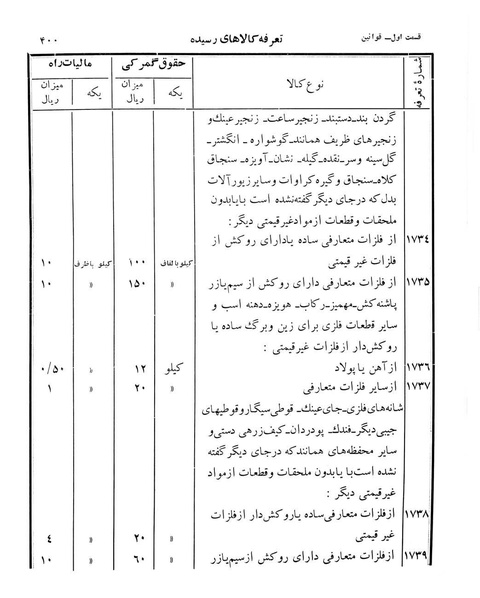 قسمت اول ـ قوانین
تعرفه کالاهای رسیده
۴۰۰
شمارهٔ تعرفه
نوع کالا
حقوق گمرکی
مالیات راه
یکه
میزان ریال
یکه
میزان ریال
گردن بند ـ دستبند ـ زنجیر ساعت ـ زنجیر عینك و
زنجیرهای ظریف همانند ـ گوشواره ـ انگشتر ـ
گل سینه و سر ـ نقده ـ گیله ـ نشان ـ آویزه ـ سنجاق
کلاه ـ سنجاق و گیره کراوات و سایر زیور آلات
بدل که درجای دیگر گفته نشده است با یا بدون
ملحقات و قطعات از مواد غیر قیمتی دیگر :
۱۷۳۴ از فلزات متعارفی ساده یا دارای روکش از
فلزات غیر قیمتی کیلو با لفاف ۱۰۰ کیلو با ظرف ۱۰
۱۷۳۵ از فلزات متعارفی دارای روکش از سیم یا زر » ۱۵۰ » ۱۰
پاشنه کش ـ مهمیز ـ رکاب ـ هویزه ـ دهنه اسب و
سایر قطعات فلزی برای زین و برگ ساده یا
روکش دار از فلزات غیر قیمتی :
۱۷۳۶ از آهن یا پولاد کیلو ۱۲ » ۰/۵۰
۱۷۳۷ از سایر فلزات متعارفی » ۲۰ » ۱
شانه های فلزی ـ جای عینك ـ قوطی سیگار و قوطیهای
جیبی دیگر ـ فندك ـ پودردان ـ کیف زرهی دستی و
سایر محفظه های همانند که درجای دیگر گفته
نشده است با یا بدون ملحقات و قطعات از مواد
غیر قیمتی دیگر :
۱۷۳۸ از فلزات متعارفی ساده یا روکش دار از فلزات
غیر قیمتی » ۲۰ » ۴
۱۷۳۹ از فلزات متعارفی دارای روکش از سیم یا زر » ۶۰ » ۱۰